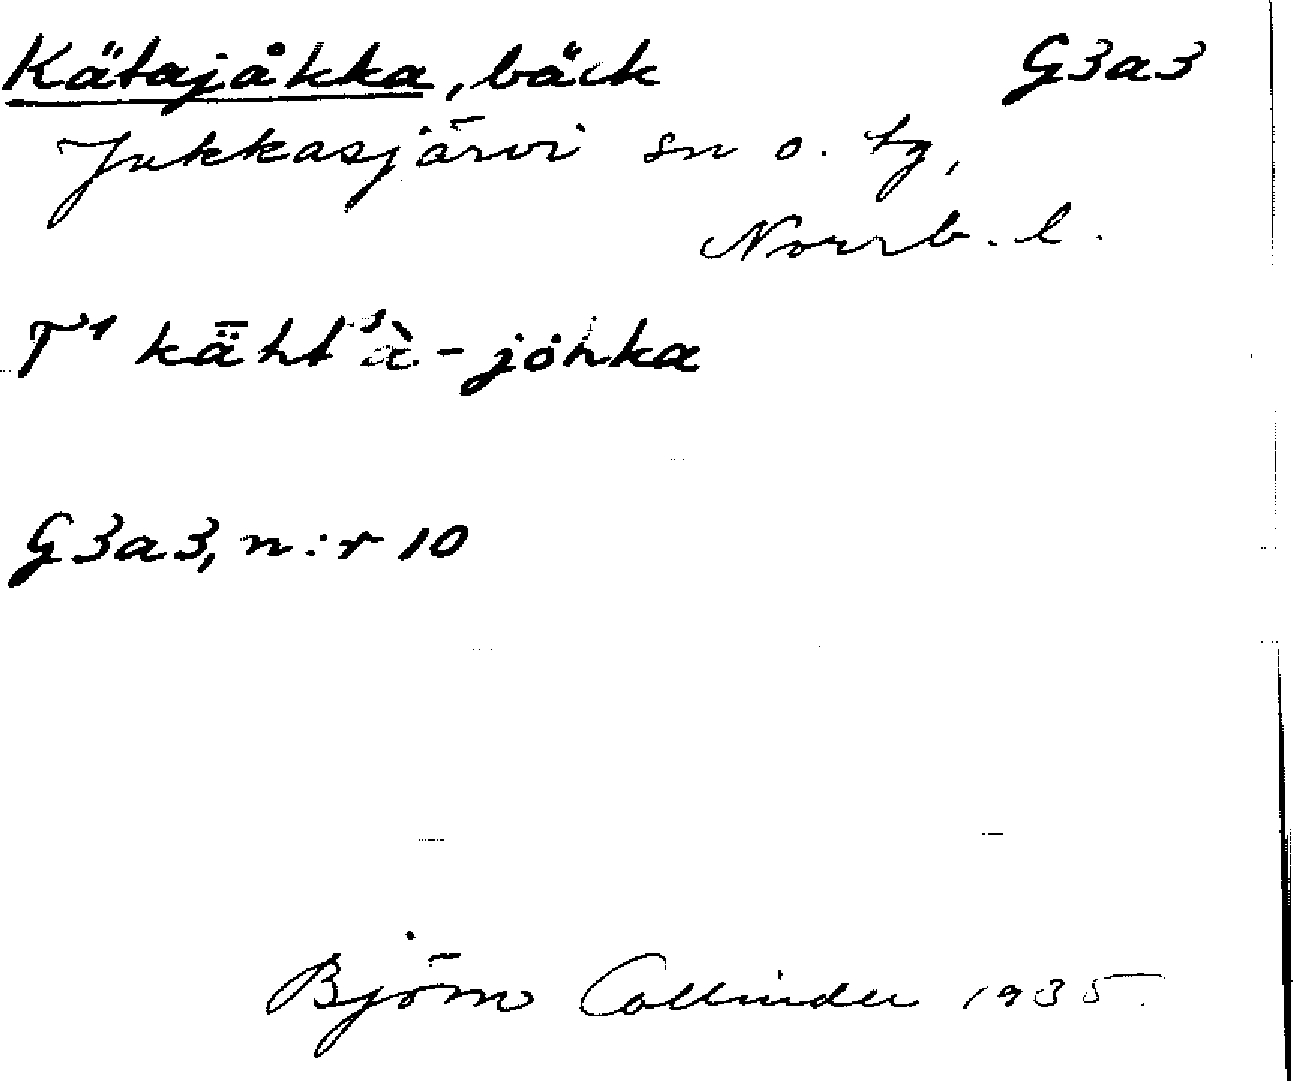 Kätajåkka, bäck G3a3
Jukkasjärvi sn o. tg,
Norrb. l.
T¹ kǟhtˈà-johka
G3a3, n:r 10
Björn Collinder 1935.